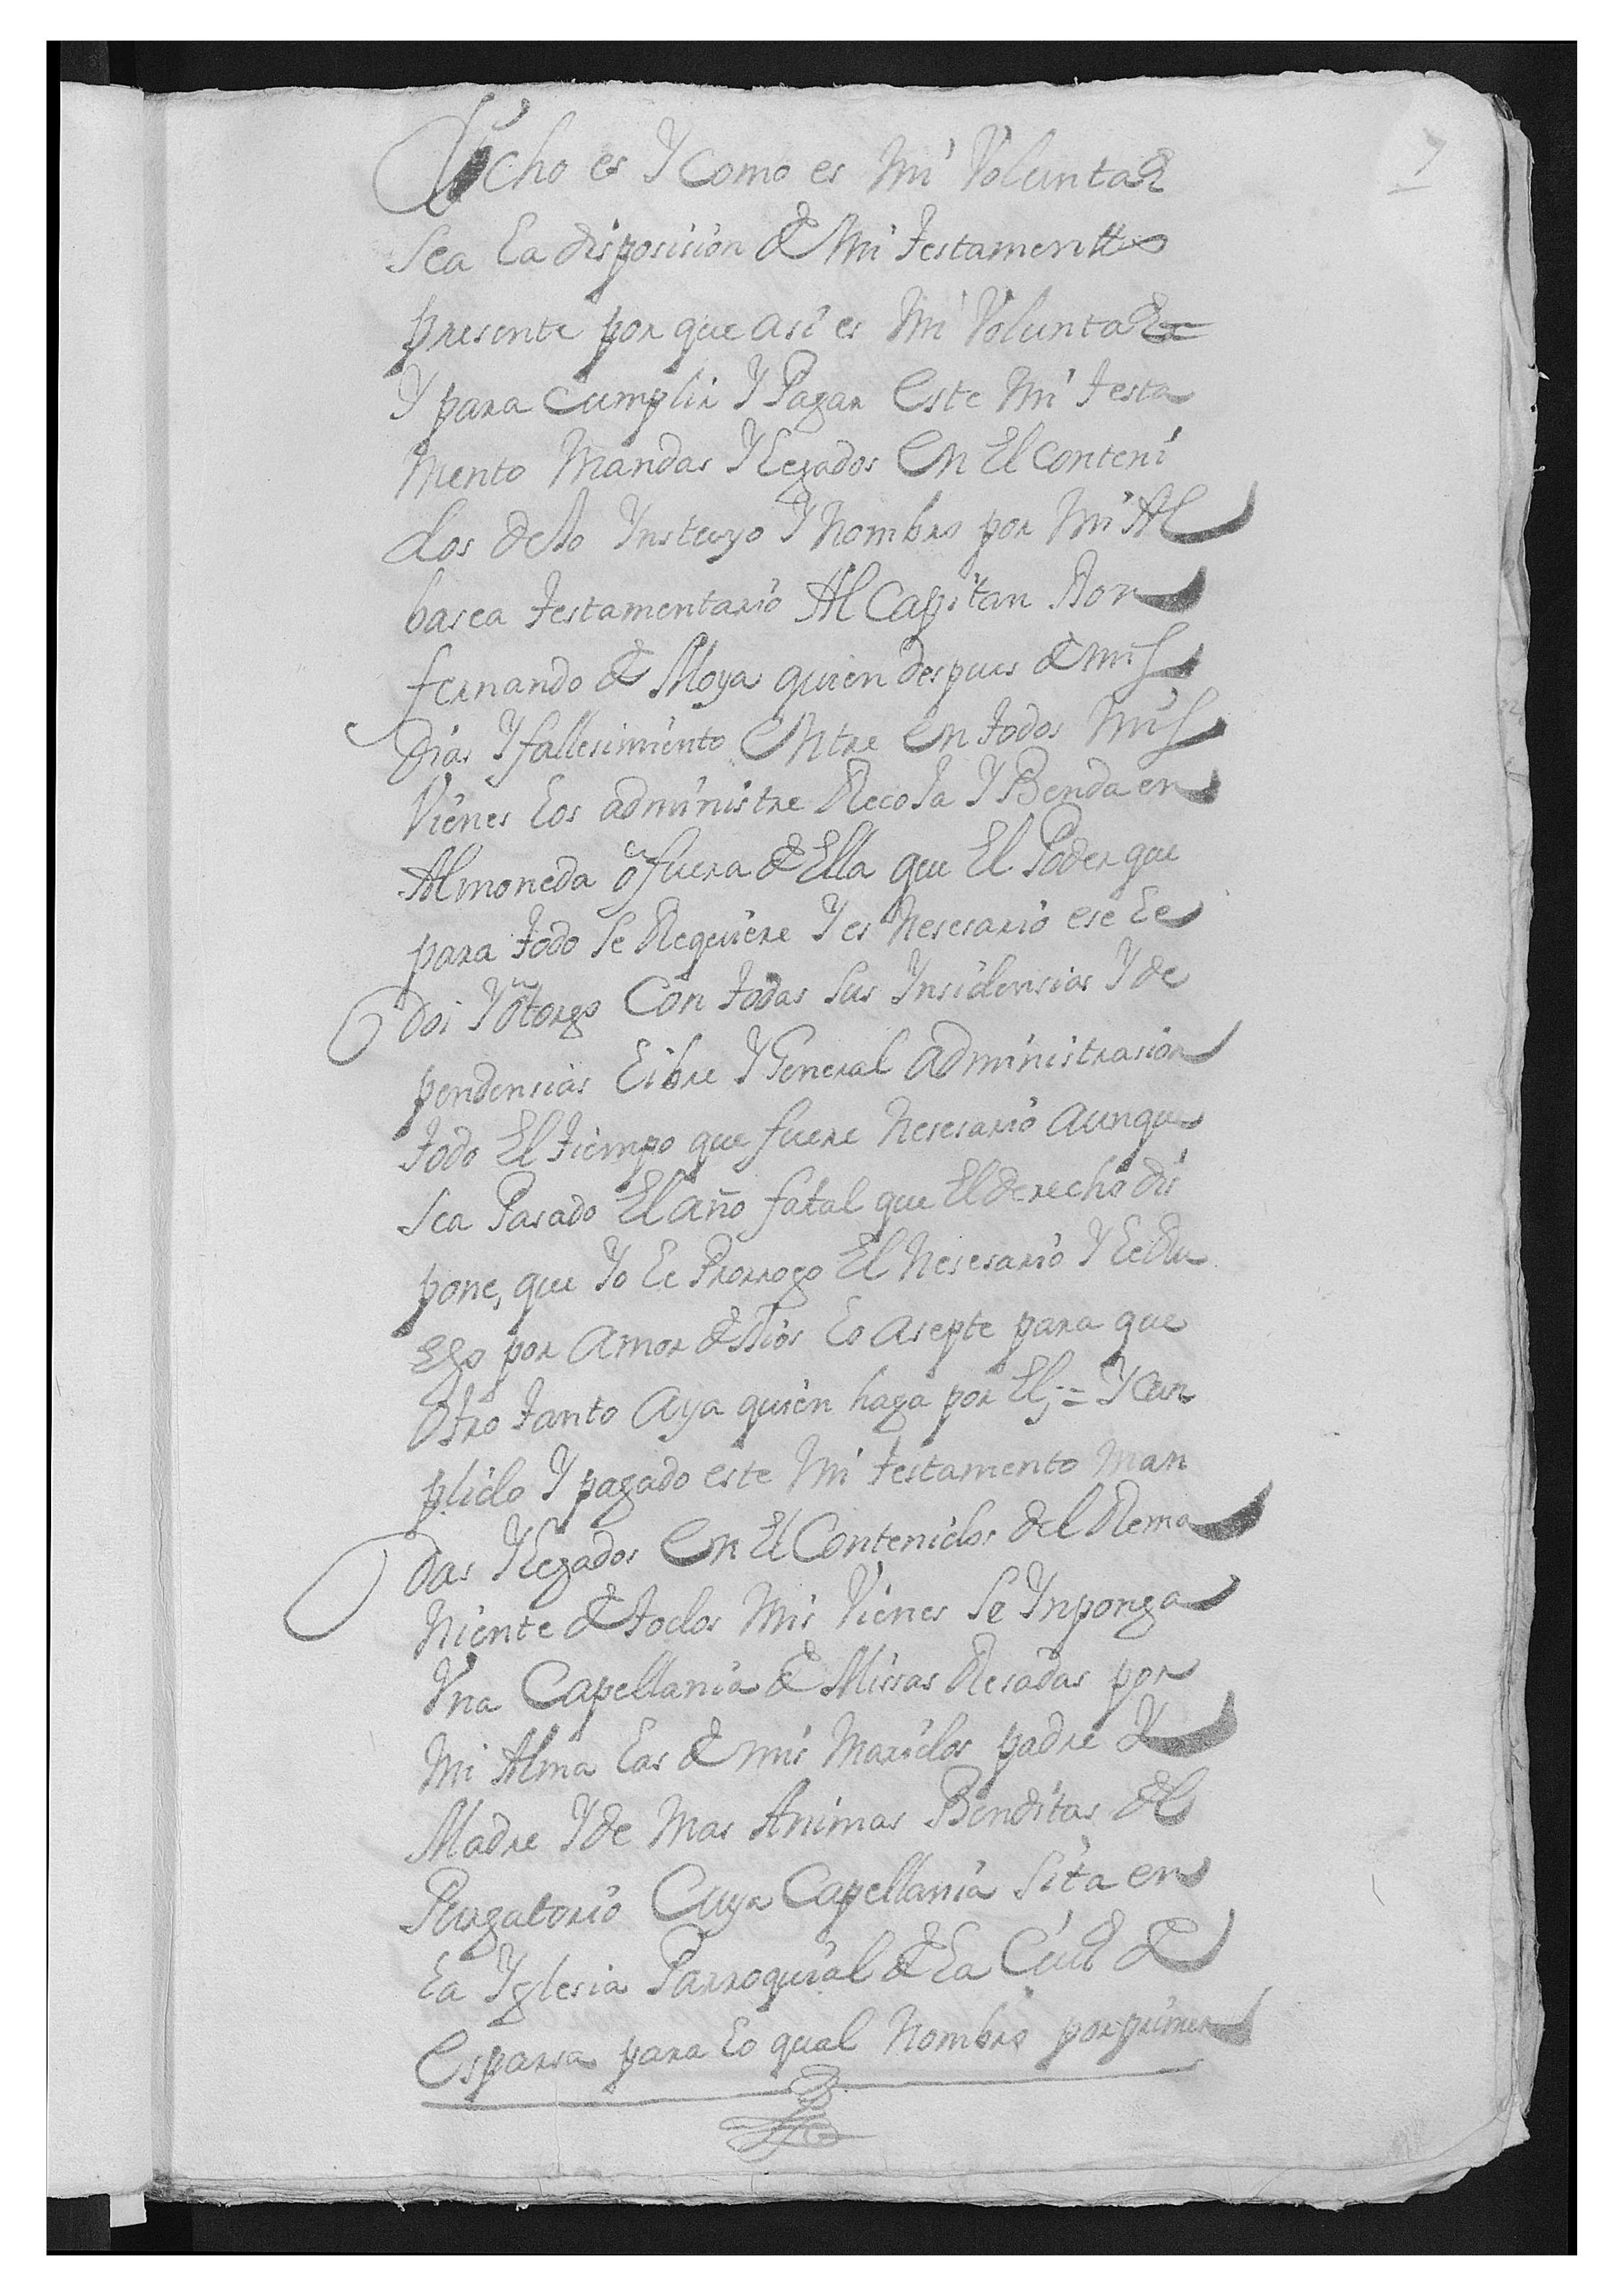 7
Dicho es Y Como es Mi Voluntad
Sea La disposision de Mi Testamentto
presente por que asi es Mi Voluntad =
Y para Cumplir Y Pagar Este Mi Testa
Mento Mandas Y Legados En El Conteni
dos dello Ynstuyo Y Nombro por Mi Al
basea Testamentario Al Capitan Don
fernando de Moya quien despues de mis
Dias Y fallesimiento Entre En todos Mis
Vienes Los administre Recoja Y Benda en
Almoneda o fuera de Ella que El Poder que
para todo Se Requiere Y es Nesesario ese Le
Doi Y otorgo Con todas Sus Ynsidensias Y de
pendensias Libre Y General administrasion
todo El tiempo que fuere Nesesario Aunque
Sea Pasado El año fatal que El derecho dis
pone, que Yo Le Prorrogo El Nesesario Y Le Ru
Ego por Amor de Dios Lo Asepte para que
Otro tanto Aya quien haga por El; = Y Cun
plido Y pagado este Mi Testamento Man
das Y Legados En El Contenidos del Rema
Niente de todos Mis Vienes Se Ynponga
Vna Capellania de Missas Resadas por
Mi Alma Las de mis Maridos padre Y
Madre Y de Mas Animas Benditas del
Purgatorio Cuya Capellania Sita en
La Yglesia Parroquial de La Ciud de
Esparsa para Lo qual Nombro por primer